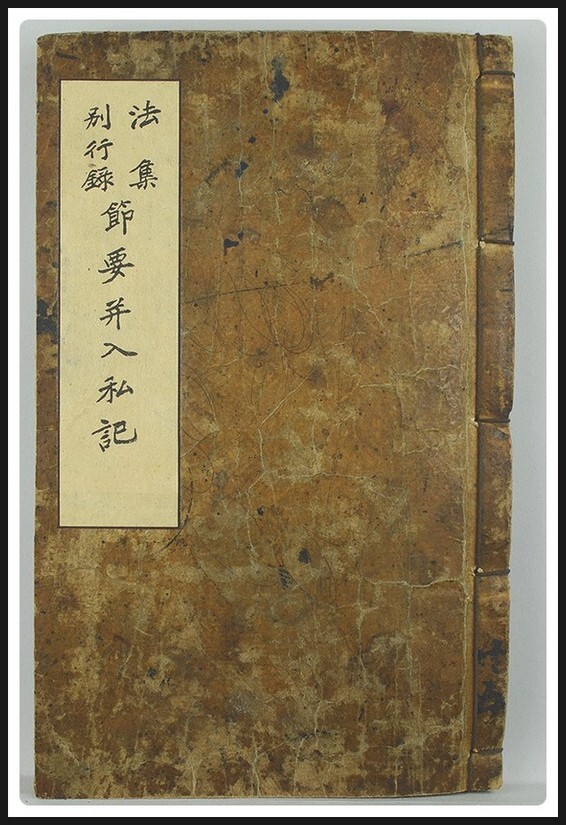 法集
别行錄
節要并入私記